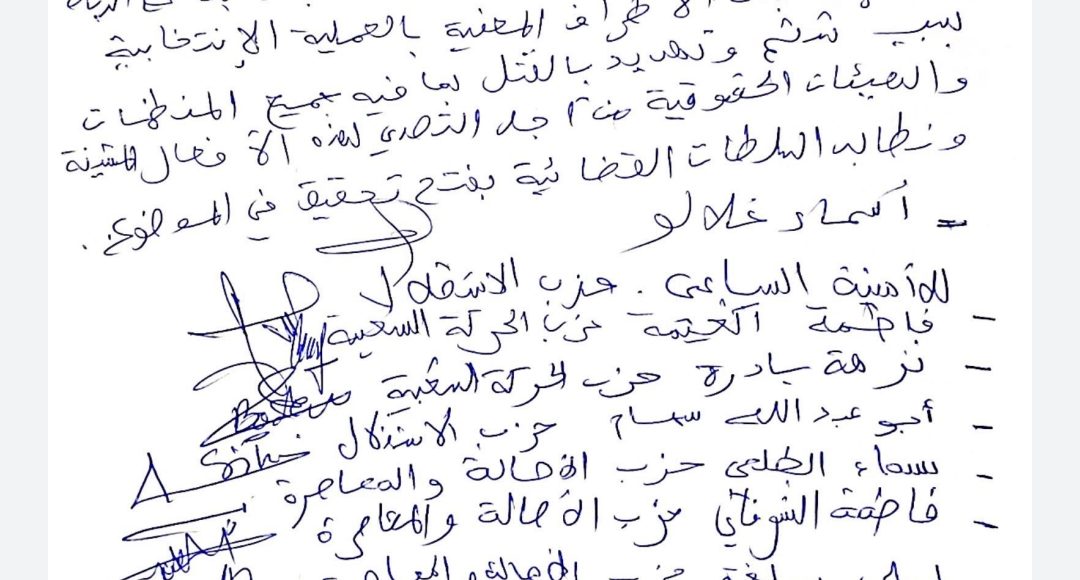 الأطراف المعنية بالعملية الإنتخابية
بسبب وتهديد بالقتل بما فيه جميع المنظمات
والهيئات الحقوقية من أجل التصدي لهذه الأفعال المشينة
ونطالب السلطات القضائية بفتح تحقيق في الموضوع.
= أسماء غلالو
الأمينة الساعي. حزب الاستقلال
- فاطمة حزب الحركة الشعبية
- نزهة بادرة حزب الحركة الشعبية
- أبو عبد الله سهام حزب الاستقلال
- بسماء حزب الأصالة والمعاصرة
- فاطمة حزب الأصالة والمعاصرة
حزب الأصالة والمعاصرة